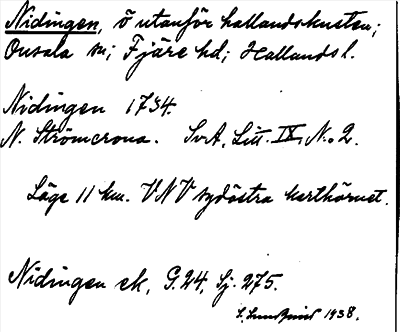 Nidingen, ö utanför hallandskusten;
Onsala sn; Fjäre hd; Hallands l.
Nidingen 1734.
N. Strömcrona. SvA, Litt. IX, No 2.
Läge 11 km. VNV sydöstra karthörnet.
Nidingen ek, G. 24, Sj. 275.
S. Lundqvist 1938.